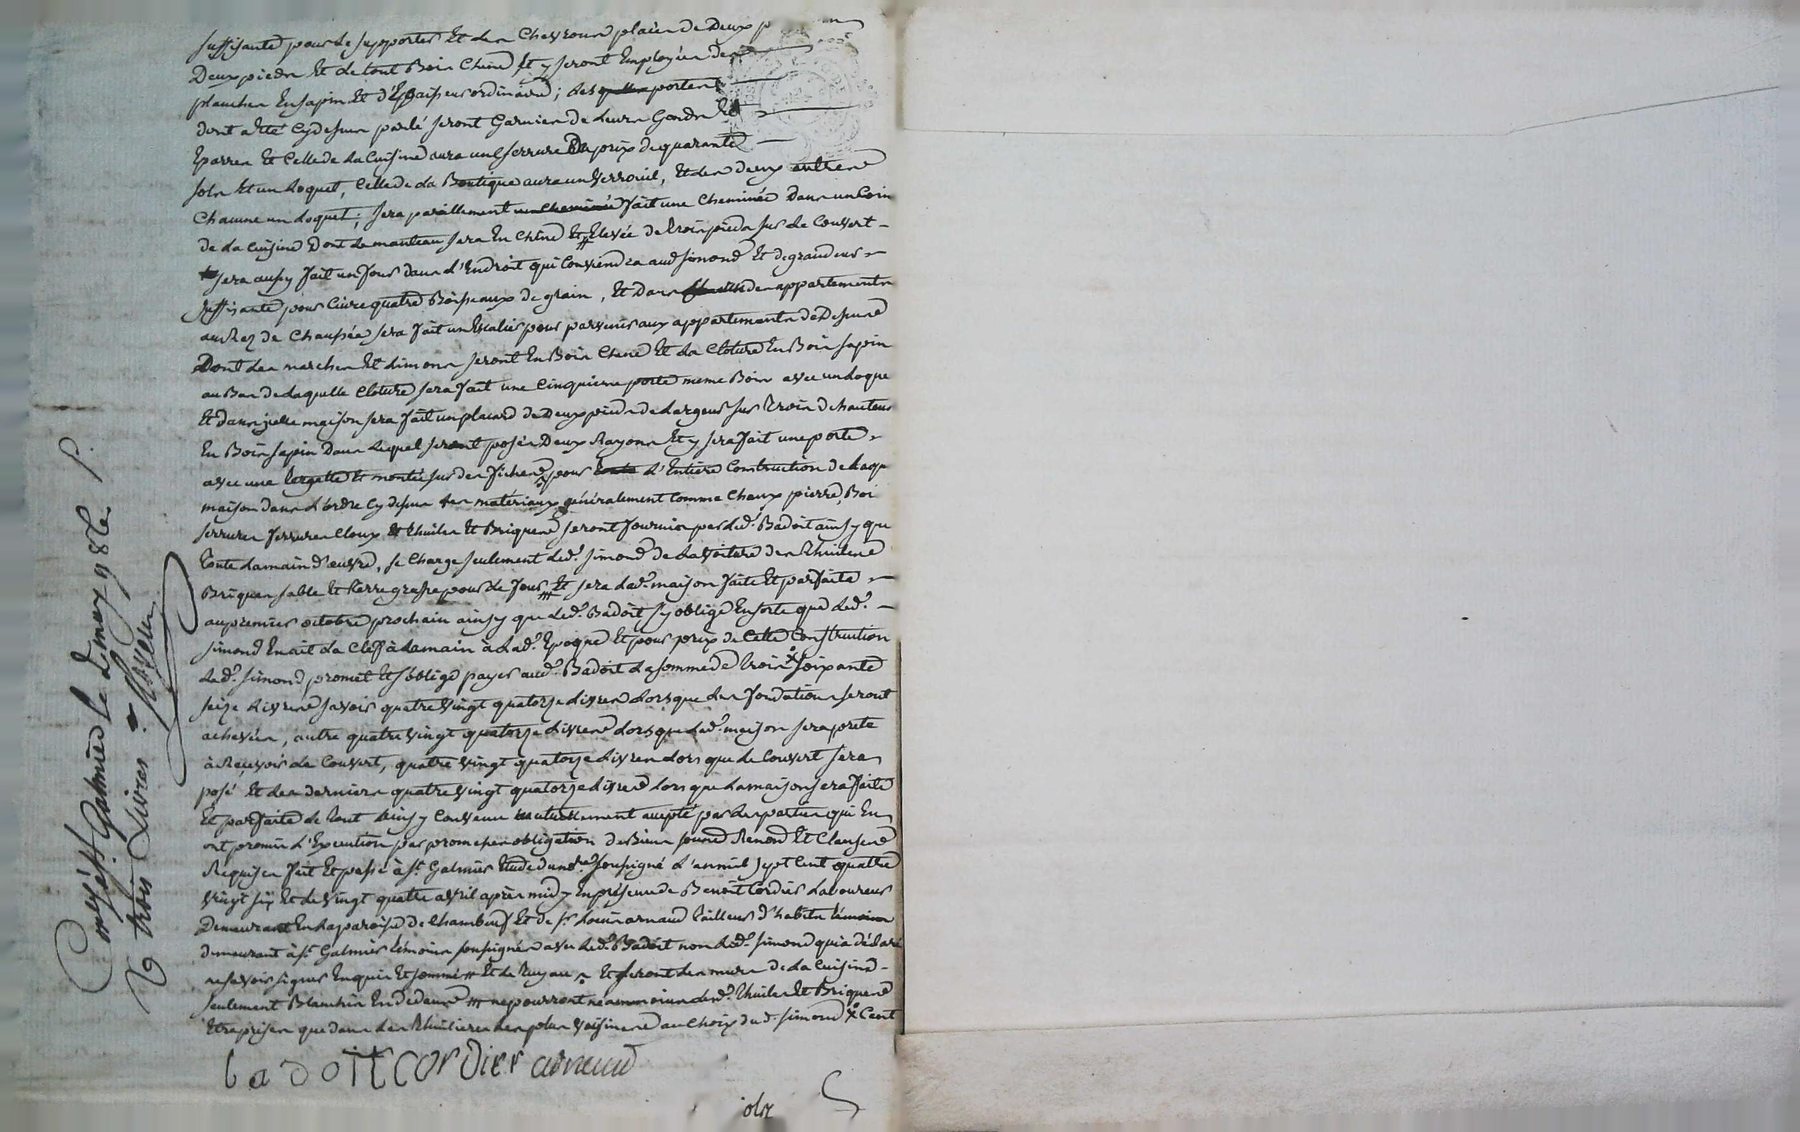 suffisante pour le supporter Et des Chevrons placés de Deux
Deux pieds Et de tout Bois Chene Et y seront Employés des
planches En sapin Et d'Epaisseur ordinaire ; les portes
dont a été Cydessus parlé seront Garnies de leurs Gonds Et
Eparres Et Celle de la Cuisine aura une serrure Du prix de quarante
sols Et un loquet, Celle de la Boutique aura un Verrouil, Et les deux autres
Chacune un loquet ; sera parallement fait une Cheminée Dans un Coin
de la Cuisine Dont le manteau sera En Chene Et Elevée de trois pieds sur le Couvert
sera aussy fait un four dans l'Endroit qui Conviendra aud simond Et de grandeur
suffisante pour Cuire quatre Boisseaux de grain, Et Dans des appartements
au Rez de Chaussée sera fait un Escalier pour parvenir aux appartements de Dessus
Dont les marches Et limons seront En Bois Chene Et la Cloture En Bois sapin
au Bas de laquelle Cloture sera fait une Cinquieme porte meme Bois avec un loque
Et dans icelle maison sera fait un placard de Deux pieds de largeur sur trois de hauteur
En Bois sapin Dans lequel seront posés Deux Rayons Et y sera fait une porte
avec une targette Et montée sur des fiches pour l'Entiere Construction de laq
maison dans l'ordre Cydessus les materiaux généralement Comme Chaux pierre, Boi
serrures ferrures Cloux thuiles Et Briques seront fournis par led. Badoit ainsy qu
toute la main d'euvre, se Charge seulement led. simond de la Voiture des thuiles
Briques sable Et terre grasse pour le four Et sera lad. maison faite Et parfaite
au premier octobre prochain ainsy que led. Badoit s'y oblige En sorte que led.
simond En ait la Cleff à la main à lad. Epoque Et pour prix de Cette Construction
led. simond promet Et s'oblige payer aud. Badoit la somme de trois soixante
seize livres savoir quatre vingt quatorze livres lorsque les fondations seront
achevées, autre quatre vingt quatorze livres lorsque lad. maison sera prete
à Recevoir le Couvert, quatre vingt quatorze livres lors que le Couvert sera
posé Et les derniers quatre vingt quatorze livres lors que la maison sera faite
Et parfaite le tout ainsy Convenu mutuellement accepté par les parties qui En
ont promis l'Execution par promesses obligation de Biens soumis Renond Et Clauses
Requises fait Et passé à st Galmier Etude du nore soussigné l'an mil sept Cent quatre
vingt six Et le vingt quatre avril après midy En présence de Benoit Cordier laboureur
Demeurant En la paroisse de Chambeuf Et de sr. Louis arnaud tailleur d'habits
demeurant à st Galmier témoins soussignés avec led. Badoit non led. simond qui a déclaré
ne savoir signer Enquis Et sommé Et de tuyau Et seront les murs de la Cuisine
seulement Blanchis En dedans ne pourront néanmoins lesd. thuiles Et Briques
Etre prises que dans les thuileries les plus voisines au Choix dud. simond Cent
badoit Cordier arnaud
Galmier le 2 may 1786
trois Livres